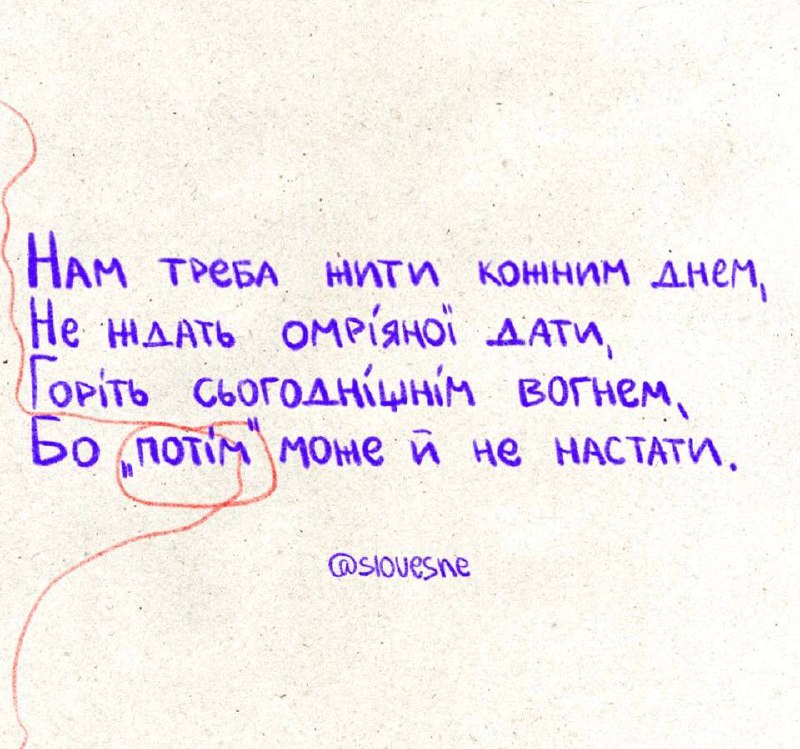 Нам треба жити кожним днем,
Не ждать омріяної дати,
Горіть сьогоднішнім вогнем,
Бо „потім“ може й не настати.
@slovesne